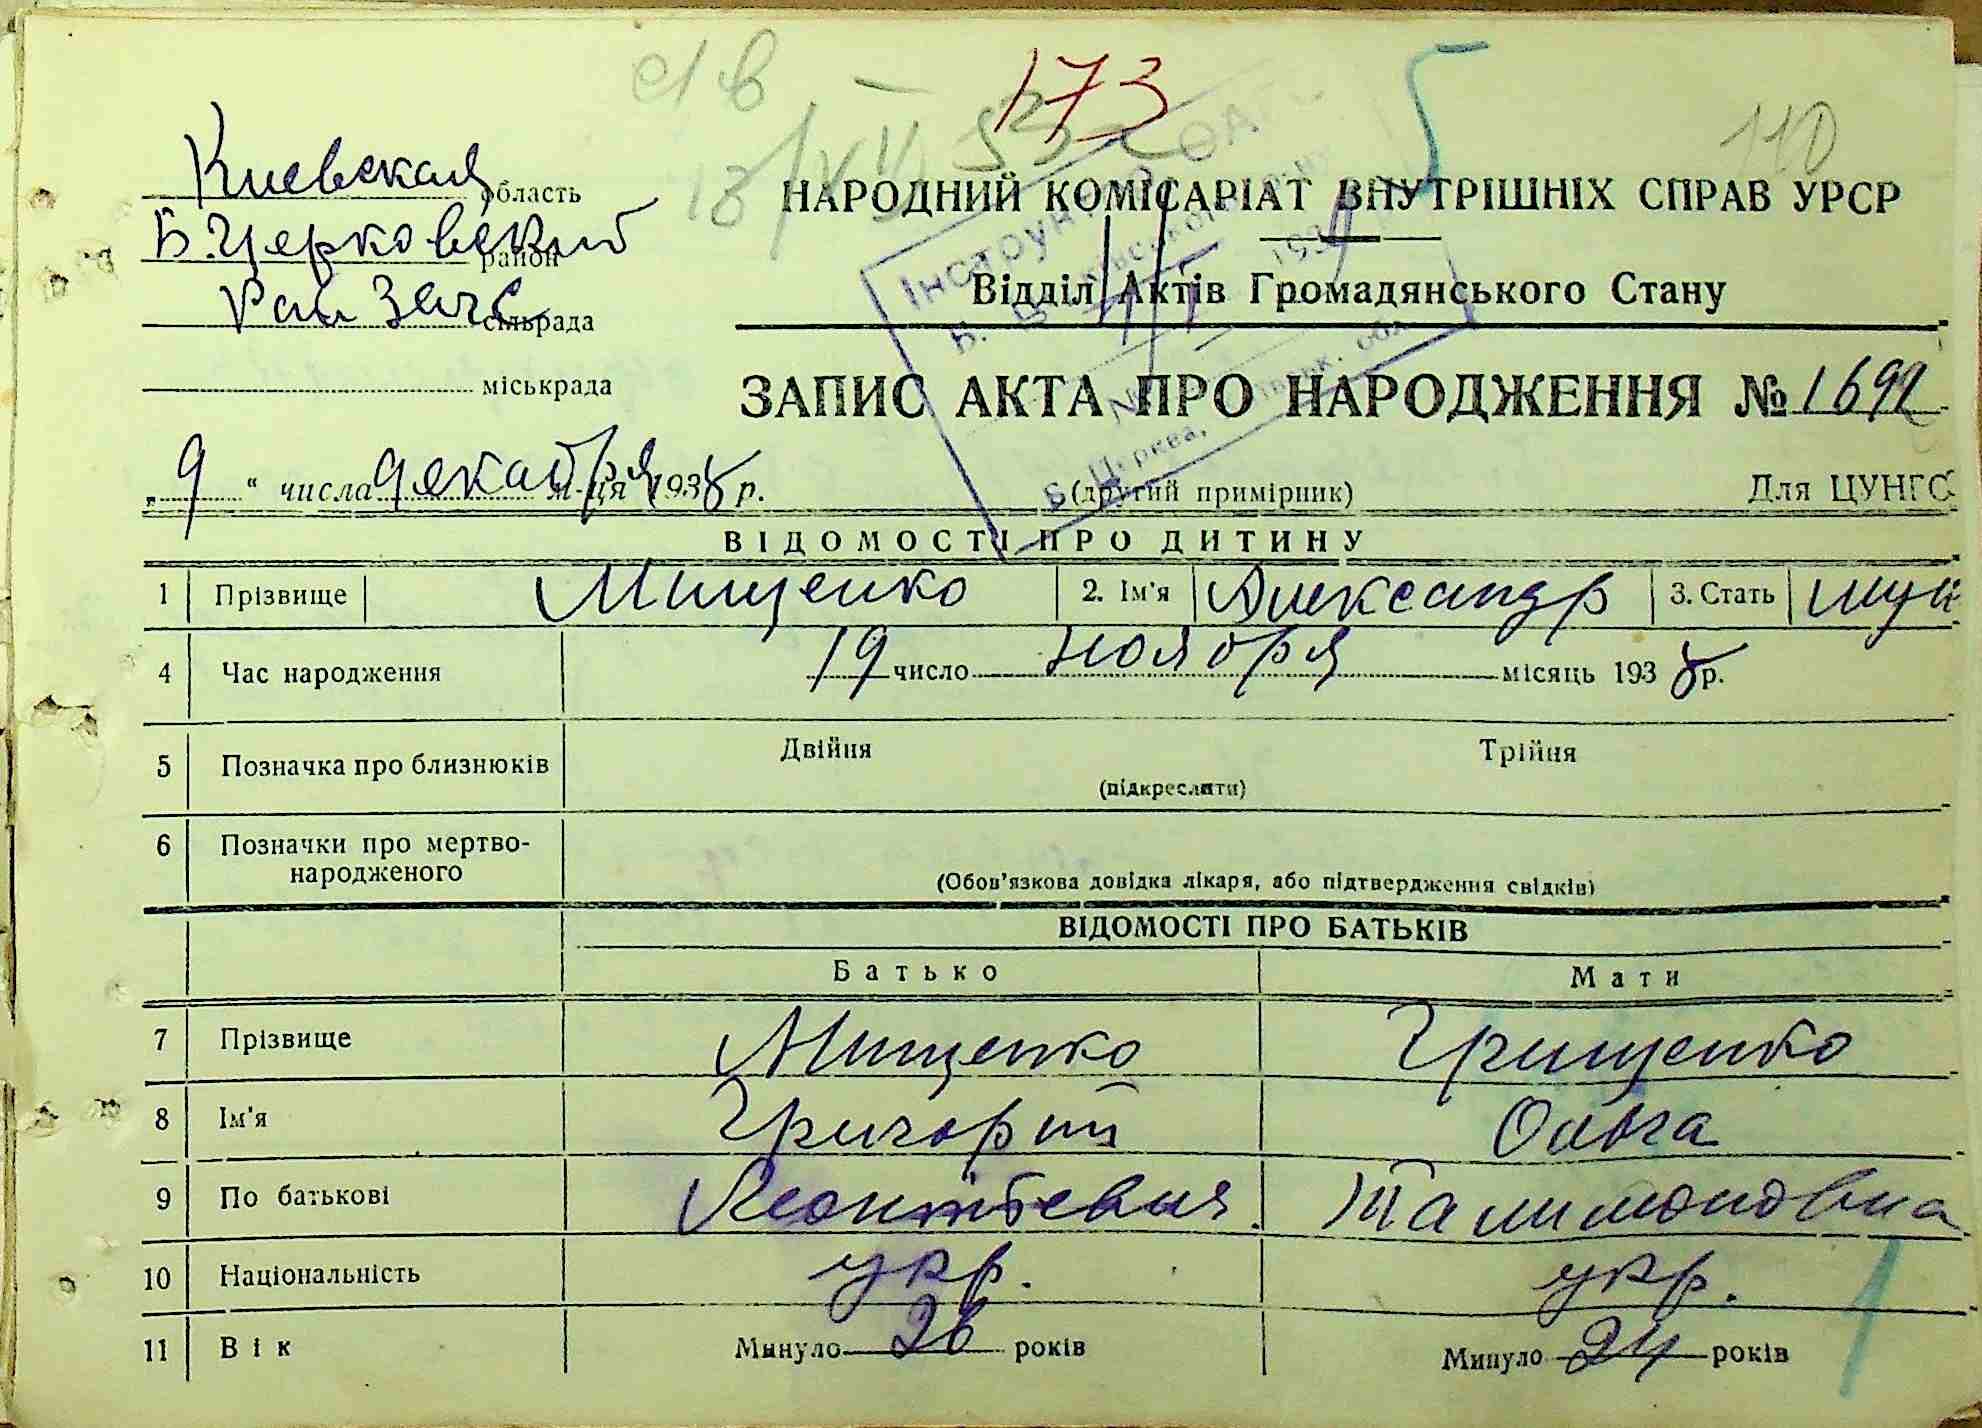 173
5
110
Киевская область
НАРОДНИЙ КОМІСАРІАТ ВНУТРІШНІХ СПРАВ УРСР
Б. Церковский район
Рай Загс сільрада
Відділ Актів Громадянського Стану
міськрада
ЗАПИС АКТА ПРО НАРОДЖЕННЯ № 1692
„9“ числа декабря м-ця 1938 р.
(другий примірник)
Для ЦУНГО
ВІДОМОСТІ ПРО ДИТИНУ
1 Прізвище Мищенко 2. Ім'я Александр 3. Стать муж
4 Час народження 19 число ноября місяць 1938 р.
5 Позначка про близнюків Двійня Трійня
(підкреслити)
6 Позначки про мертво-
народженого
(Обов'язкова довідка лікаря, або підтвердження свідків)
ВІДОМОСТІ ПРО БАТЬКІВ
Батько Мати
7 Прізвище Мищенко Грищенко
8 Ім'я Григорий Ольга
9 По батькові Леонтьевич. Талимоновна
10 Національність укр. укр.
11 Вік Минуло 26 років Минуло 24 років